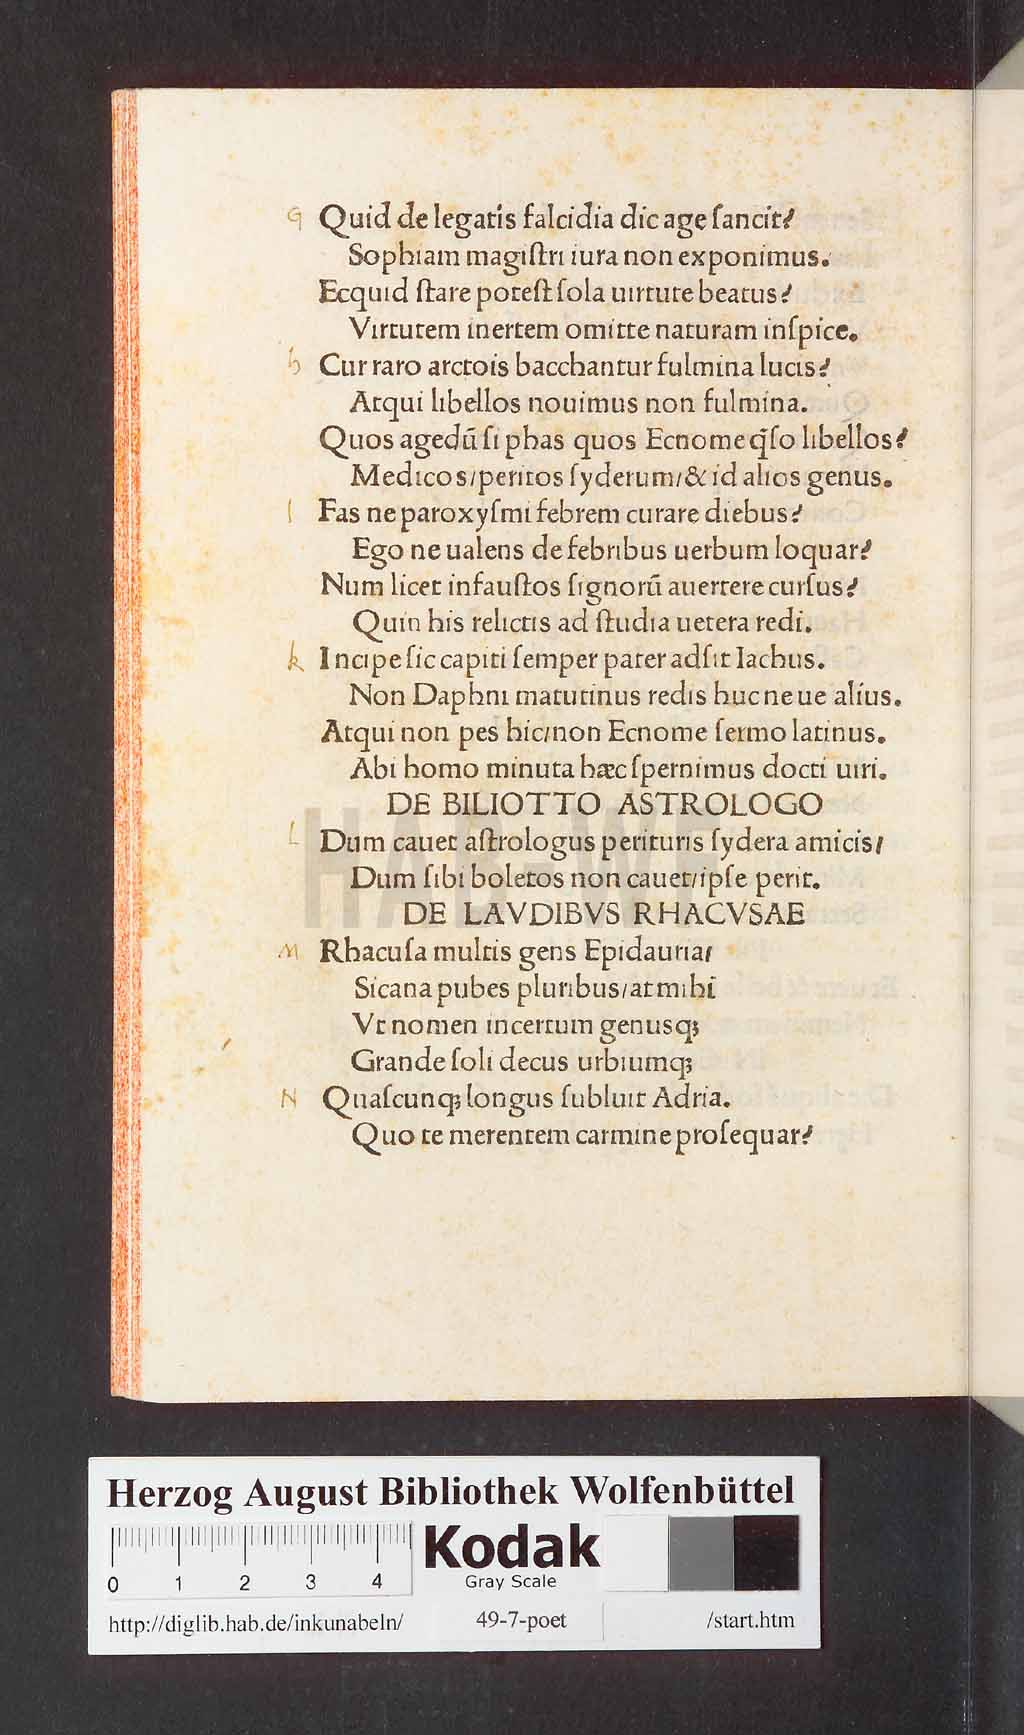 G Quid de legatis falcidia dic age ſancit?
Sophiam magiſtri iura non exponimus.
Ecquid ſtare poteſt ſola uirtute beatus?
Virtutem inertem omitte naturam inſpice.
h Cur raro arctois bacchantur fulmina lucis?
Atqui libellos nouimus non fulmina.
Quos agedū ſi phas quos Ecnome q̄ſo libellos?
Medicos/peritos ſyderum/& id alios genus.
I Fas ne paroxyſmi febrem curare diebus?
Ego ne ualens de febribus uerbum loquar?
Num licet infauſtos ſignorū auertere curſus?
Quin his relictis ad ſtudia uetera redi.
k Incipe ſic capiti ſemper pater adſit Iachus.
Non Daphni matutinus redis huc neue alius.
Atqui non pes hic/non Ecnome ſermo latinus.
Abi homo minuta hæc ſpernimus docti uiri.
DE BILIOTTO ASTROLOGO
L Dum cauet aſtrologus perituris ſydera amicis/
Dum ſibi boletos non cauet/ipſe perit.
DE LAVDIBVS RHACVSAE
M Rhacuſa multis gens Epidauria/
Sicana pubes pluribus/at mihi
Vt nomen incertum genusq;
Grande ſoli decus urbiumq;
N Quaſcunq; longus ſubluit Adria.
Quo te merentem carmine proſequar?
HAB-WF
Herzog August Bibliothek Wolfenbüttel
0 1 2 3 4
Kodak
Gray Scale
http://diglib.hab.de/inkunabeln/ 49-7-poet /start.htm